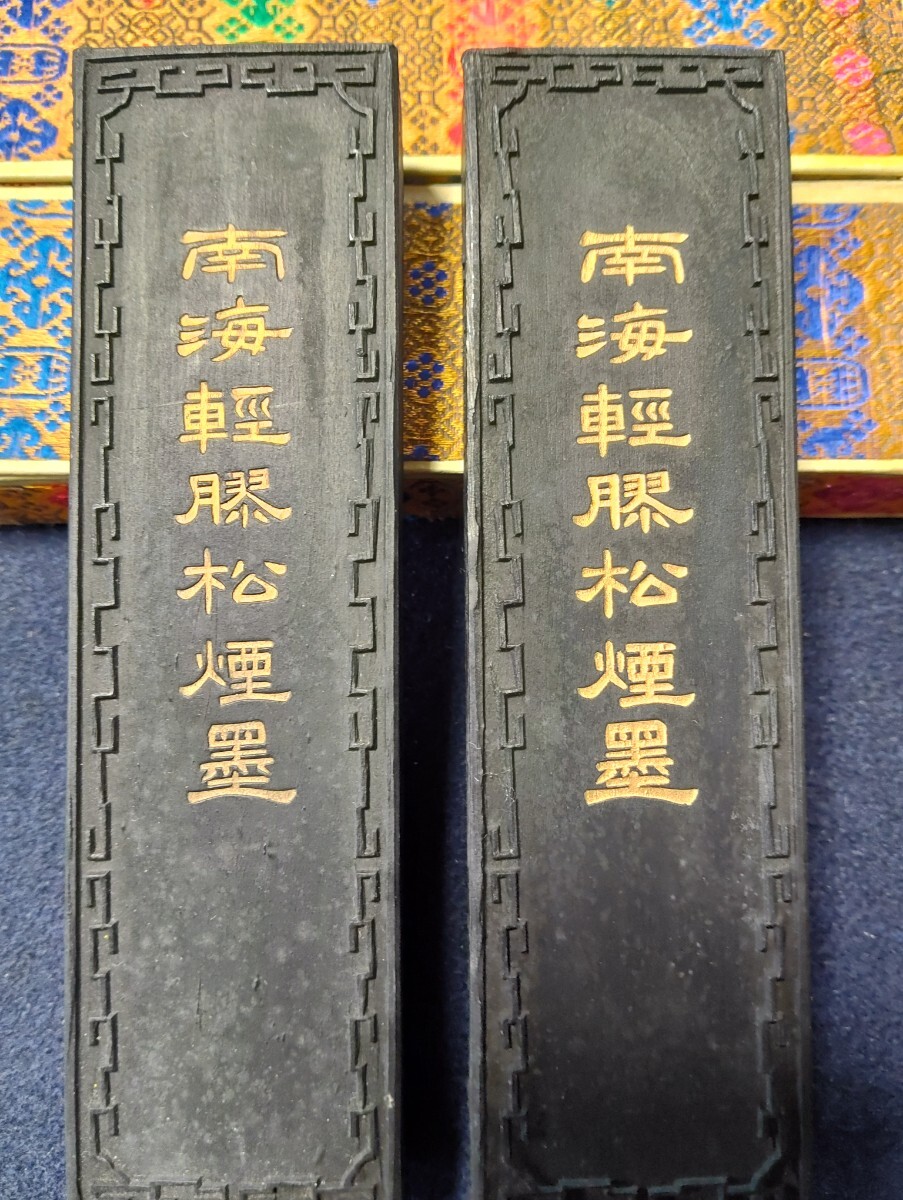 南海輕膠松煙墨
南海輕膠松煙墨